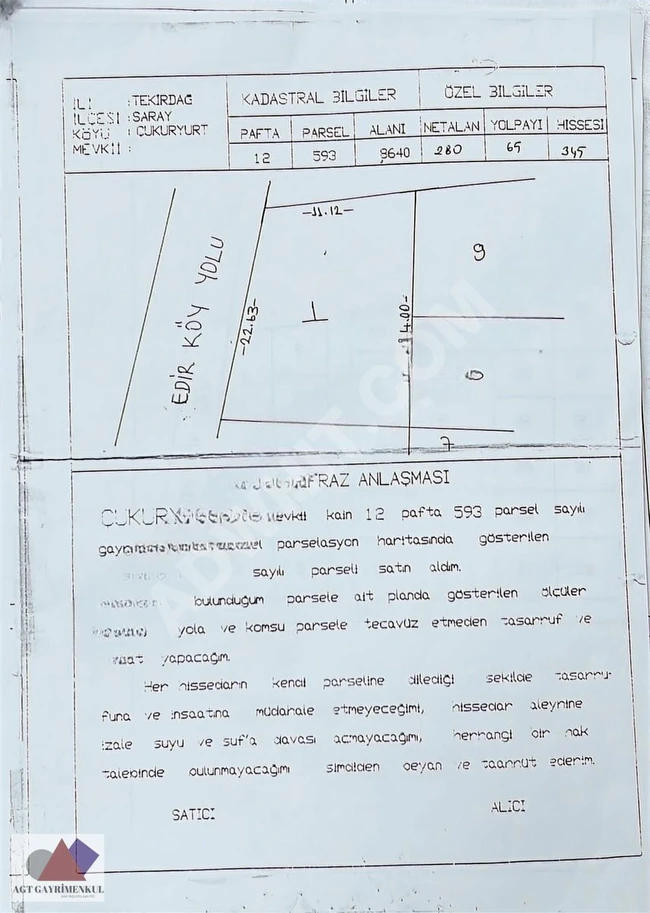 İLİ : TEKİRDAĞ
İLÇESİ : SARAY
KÖYÜ : ÇUKURYURT
MEVKİİ :
KADASTRAL BİLGİLER
ÖZEL BİLGİLER
PAFTA PARSEL ALANI NETALAN YOLPAYI HİSSESİ
12 593 9640 280 65 345
EDİR KÖY YOLU
11.12
22.63
1
9
7
FRAZ ANLAŞMASI
mevkii kain 12 pafta 593 parsel sayılı
parselasyon haritasında gösterilen
sayılı parseli satın aldım.
bulunduğum parsele ait planda gösterilen ölçüler
yola ve komsu parsele tecavüz etmeden tasarruf ve
yapacağım.
Her hissedarın kendi parseline dilediği sekilde tasarru-
funa ve insaatına müdahale etmeyeceğimi, hissedar aleyhine
izale suyu ve suf'a davası açmayacağımı, herhangi bir hak
talebinde bulunmayacağımı simdiden beyan ve taahhüt ederim.
SATICI
ALICI
AGT GAYRİMENKUL